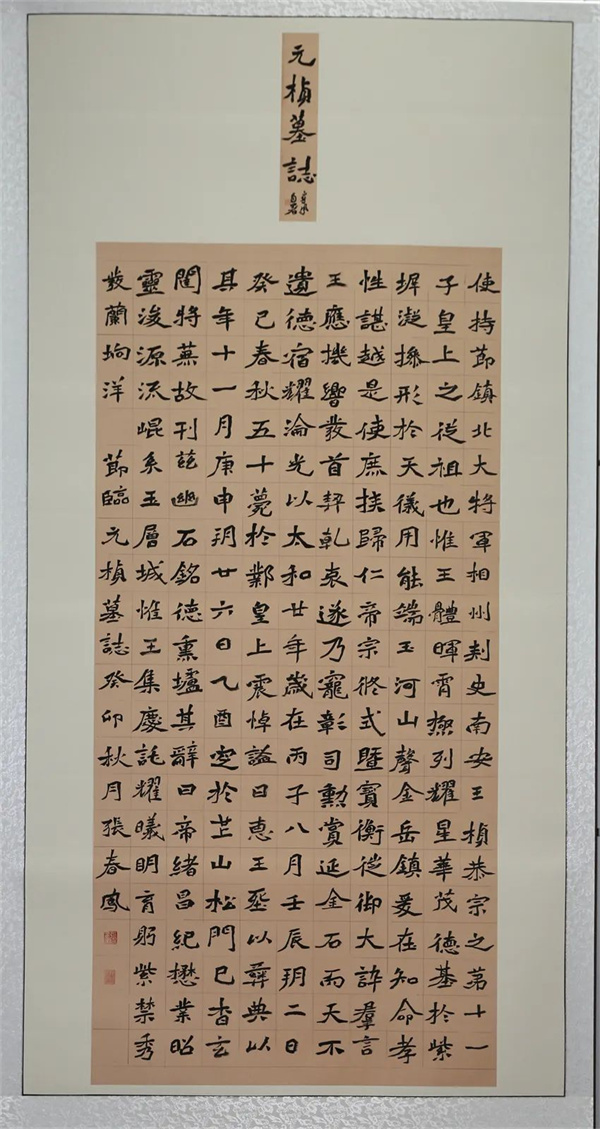 元楨墓誌
使持節鎮北大將軍相州刺史南安王楨恭宗之第十一
子皇上之從祖也惟王體暉霄極列耀星華茂德基於紫
墀凝操形於天儀用能端玉河山聲金岳鎮爰在知命孝
性諶越是使庶族歸仁帝宗攸式暨寶衡徙御大訊羣言
王應機響發首契乾衷遂乃寵彰司勳賞延金石而天不
遺德宿耀淪光以太和廿年歲在丙子八月壬辰朔二日
癸巳春秋五十薨於鄴皇上震悼謚曰惠王葬以彝典以
其年十一月庚申朔廿六日乙酉窆於芒山松門已杳玄
闥將蕪故刊兹幽石銘德熏壚其辭曰帝緒昌紀懋業昭
靈浚源流崐系玉層城惟王集慶託耀曦明育躬紫禁秀
發蘭坰洋 節臨元楨墓誌癸卯秋月張春鳳